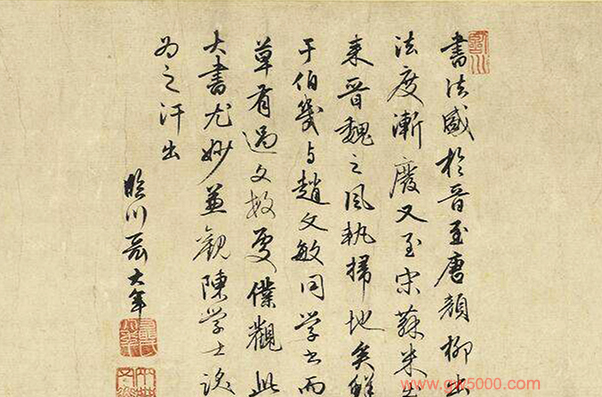 書法盛於晉至唐顏柳出
法度漸廢又至宋蘇米出
來晉魏之風執掃地矣鮮
于伯幾与趙文敏同学書而
草有過文敏處僕觀此
大書尤妙並觀陳学士跋
為之汗出
臨川聶大年